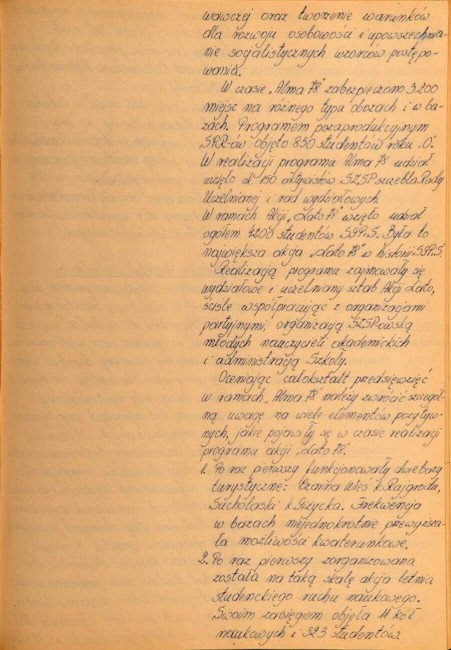 wawczej oraz tworzenie warunków
dla rozwoju osobowości i upowszechnia-
nie socjalistycznych wzorców postępo-
wania.
W czasie „Alma 78" zabezpieczono 3.200
miejsc na różnego typu obozach i w ba-
zach. Programem pozaprodukcyjnym
SRR-ów objęto 850 studentów roku „0".
W realizacji programu Alma 78 udział
wzięło ok. 150 aktywistów SZSP szczebla Rady
Uczelnianej i rad wydziałowych.
W ramach Akcji „Lato 78" wzięło udział
ogółem 4200 studentów SGPiS. Była to
największa akcja „Lato 78" w historii SGPiS.
Realizacją programu zajmowały się
wydziałowe i uczelniany sztab Akcji Lato,
ściśle współpracując z organizacjami
partyjnymi, organizacją SZSP-owską
młodych nauczycieli akademickich
i administracją Szkoły.
Oceniając całokształt przedsięwzięć
w ramach „Alma 78" należy zwrócić szczegól-
ną uwagę na wiele elementów pozytyw-
nych, jakie pojawiły się w czasie realizacji
programu akcji „Lato 78".
1. Po raz pierwszy funkcjonowały dwie bazy
turystyczne: Czarna Wieś k. Rajgrodu,
Sucholaski k. Giżycka. Frekwencja
w bazach niejednokrotnie przewyższa-
ła możliwości kwaterunkowe.
2. Po raz pierwszy zorganizowana
została na taką skalę akcja letnia
studenckiego ruchu naukowego.
Swoim zasięgiem objęła 11 kół
naukowych i 323 studentów.